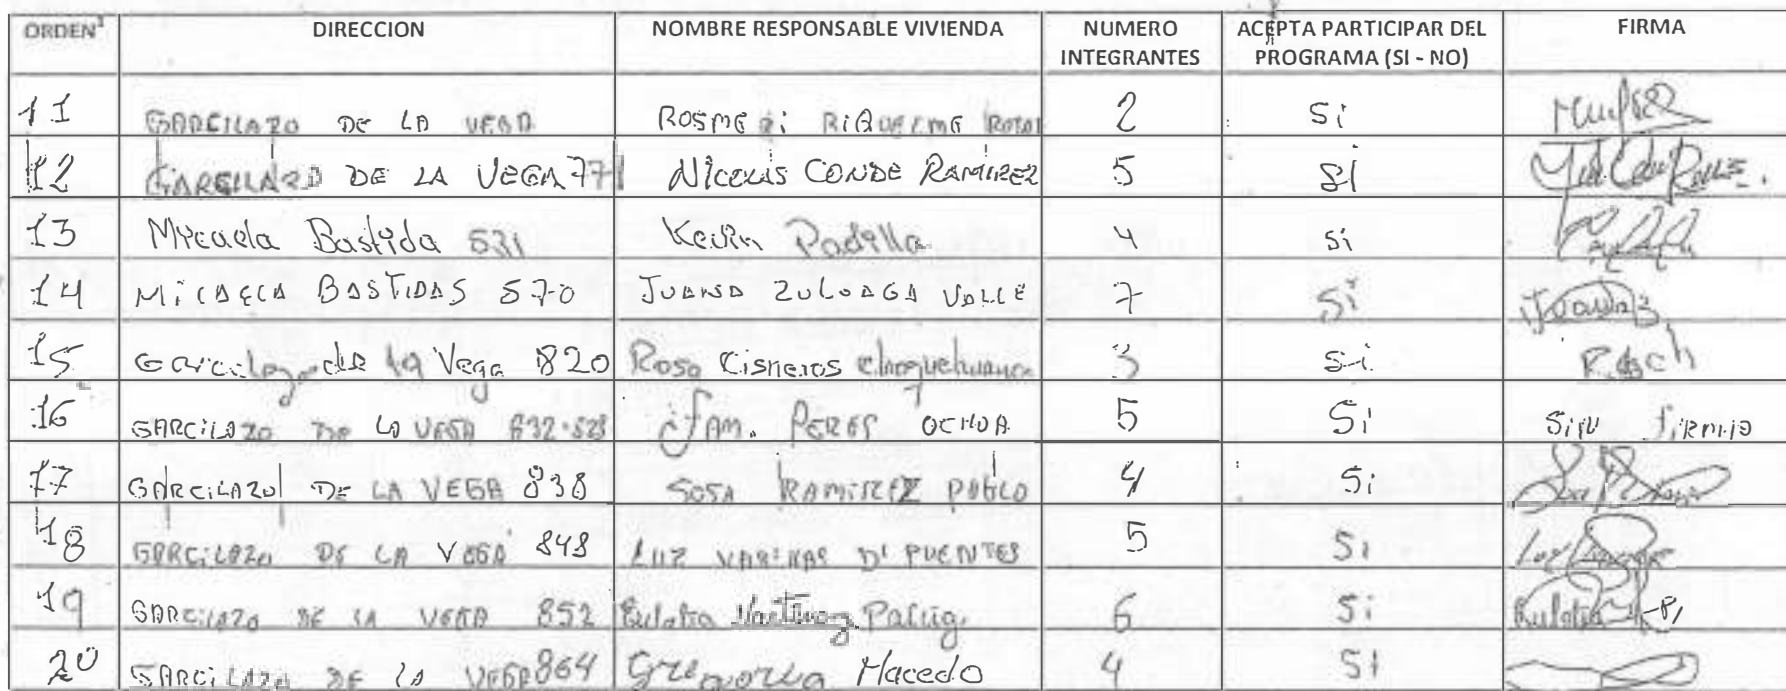 ORDEN¹ DIRECCION NOMBRE RESPONSABLE VIVIENDA NUMERO INTEGRANTES ACEPTA PARTICIPAR DEL PROGRAMA (SI - NO) FIRMA
11 GARCILAZO DE LA VEGA ROSMERI RIQUELME 2 Si
12 GARCILAZO DE LA VEGA 771 NICOLAS CONDE RAMIREZ 5 SI
13 Micaela Bastida 531 Kevin Padilla 4 si
14 MICAELA BASTIDAS 570 JUANA ZULOAGA VALLE 7 Si Juana
15 Garcilazo de la Vega 820 Rosa Cisneros choquehuanca 3 Si R.sch
16 GARCILAZO DE LA VEGA 832-828 FAM. PERES OCHOA 5 Si SIN FIRMA
17 GARCILAZO DE LA VEGA 838 SOSA RAMIREZ PABLO 4 Si
18 GARCILAZO DE LA VEGA 848 LUZ VARINAS D' PUENTES 5 Si
19 GARCILAZO DE LA VEGA 852 Eulalia Martinez 6 Si Eulalia
20 GARCILAZO DE LA VEGA 864 Gregoria Macedo 4 SI